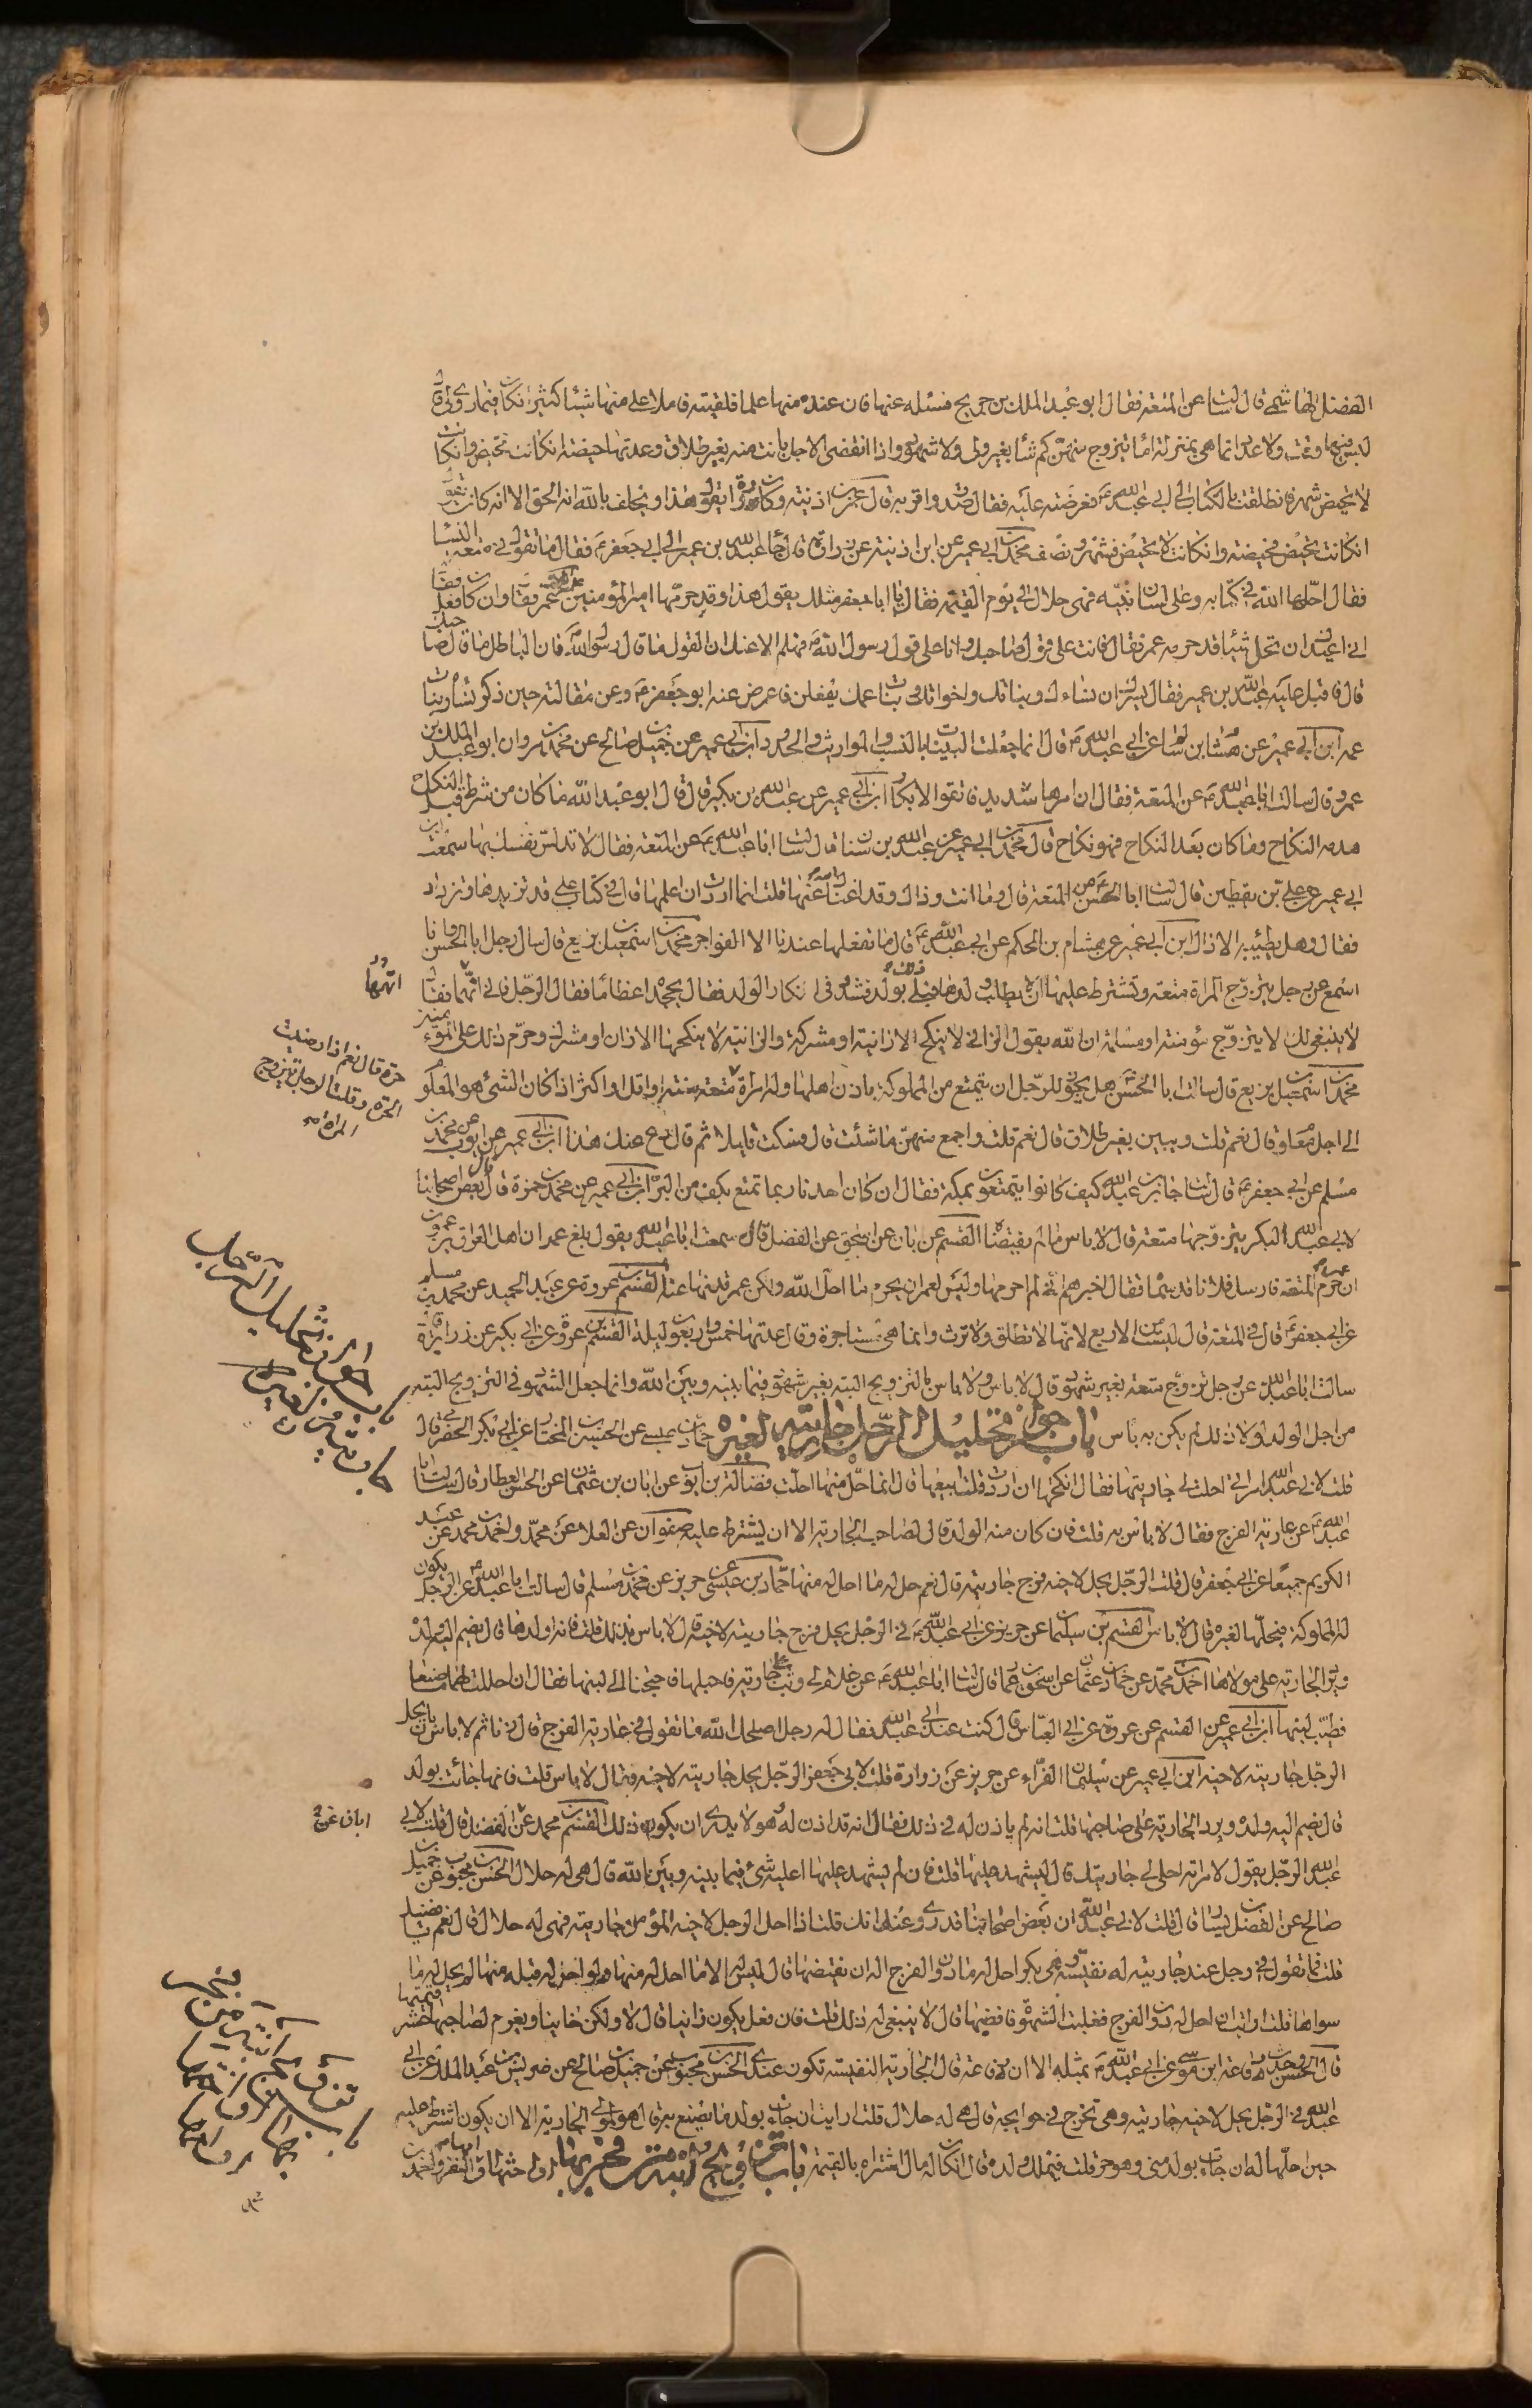 الفضل الهاشمي قال سالت عن المتعة فقال ابو عبد الملك بن جريج فسئله عنها فان عنده منها علما فلقيته فاملا على منها شيئا كثيرا فكان فيما روى لي قال
ليس فيها وقت ولا عدد انما هي بمنزلة الاما يتزوج منهن كم شاء بغير ولي ولا شهود واذا انقضى الاجل بانت منه بغير طلاق وعدتها حيضة ان كانت تحيض وان كانت
لا تحيض شهر فانطلقت بالكتاب الى ابي عبد الله ع فعرضته عليه فقال صدق واقر به قال عمر بن اذينة وكان زرارة يقول هذا ويحلف بالله انه الحق الا انه كان يقول
ان كانت تحيض فحيضة وان كانت لا تحيض فشهر ونصف محمد بن ابي عمير عن ابن اذينة عن زرارة قال جاء عبد الله بن عمير الى ابي جعفر ع فقال ما تقول في متعة النساء
فقال احلها الله في كتابه وعلى لسان نبيه فهي حلال الى يوم القيمة فقال يا ابا جعفر مثلك يقول هذا وقد حرمها امير المؤمنين عمر فقال وان كان فعل فقال
اني اعيذك ان تحل شيئا قد حرمه عمر فقال فانت على قول صاحبك وانا على قول رسول الله ص فهلم الاعنك ان القول ما قال رسول الله ص وان الباطل ما قال صاحبك
قال فاقبل عليه عبد الله بن عمير فقال ايسرك ان نساءك وبناتك واخواتك وبنات عمك يفعلن فاعرض عنه ابو جعفر ع وعن مقالته حين ذكر نساءه وبنات
عمه ابن ابي عمير عن هشام بن سالم عن ابي عبد الله ع قال انما جعلت البينات للنسب والمواريث والحدود ابن ابي عمير عن جميل بن صالح عن محمد بن مروان ابو عبد الملك بن
عمرو قال سالت ابا عبد الله ع عن المتعة فقال ان امرها شديد فاتقوا الابكار ابن ابي عمير عن عبد الله بن بكير قال قال ابو عبد الله ما كان من شرط قبل النكاح
هدمه النكاح وما كان بعد النكاح فهو نكاح قال محمد بن ابي عمير عن عبد الله بن سنان قال سالت ابا عبد الله ع عن المتعة فقال لا تدنس نفسك بها سمعت ابن
ابي عمير عن علي بن يقطين قال سالت ابا الحسن ع عن المتعة قال وما انت وذاك وقد اغناك الله عنها قلت انما اردت ان اعلمها قال في كتاب علي قد نزيدها وتزداد
فقال وهل يطيبه الا ذاك ابن ابي عمير عن هشام بن الحكم عن ابي عبد الله ع قال ما تفعلها عندنا الا الفواجر محمد بن اسمعيل بن بزيع قال سال رجل ابا الحسن وانا
اسمع عن رجل يتزوج المراة متعة وتشترط عليها ان لا يطلب ولدها فتاتي بعد ذلك بولد فشدد في انكار الولد فقال يجحده اعظاما فقال الرجل فاني اتهمها فقال
لا ينبغي لك لا يتزوج مؤمنة او مسلمة ان الله يقول الزاني لا ينكح الا زانية او مشركة والزانية لا ينكحها الا زان او مشرك وحرم ذلك على المؤمنين
محمد بن اسمعيل بن بزيع قال سالت ابا الحسن هل يجوز للرجل ان يتمتع من المملوكة باذن اهلها وله امراة متعة سنة او اقل او اكثر اذا كان الشئ هو المعلوم
الى اجل معلوم قال نعم قلت وتبين بغير طلاق قال نعم قلت واجمع منهن ما شئت قال فسكت قليلا ثم قال دع عنك هذا ابن ابي عمير عن ايوب عن محمد بن
مسلم عن ابي جعفر ع قال سالت جابر بن عبد الله كيف كانوا يتمتعون بمكة فقال ان كان احدنا ربما تمتع بكف من البر ابن ابي عمير عن محمد بن حمزة قال قال بعض اصحابنا
لابي عبد الله البكر يتزوجها متعة قال لا باس ما لم يفتضها القسم عن ابان عن اسحق عن الفضل قال سمعت ابا عبد الله يقول بلغ عمر ان اهل العراق يزعمون
ان عمر حرم المتعة فارسل فلانا قد سماه فقال اخبرهم اني لم احرمها وليس لعمر ان يحرم ما احل الله ولكن عمر قد نهى عنها القسم بن عروة عن عبد الحميد عن محمد بن مسلم
عن ابي جعفر ع قال في المتعة قال ليست من الاربع لانها لا تطلق ولا ترث وانما هي مستاجرة وقال عدتها خمس واربعون ليلة القسم بن عروة عن ابن بكير عن زرارة قال
سالت ابا عبد الله عن رجل تزوج متعة بغير شهود قال لا باس ولا باس بالتزويج البتة بغير شهود فيما بينه وبين الله وانما جعل الشهود في التزويج البتة
من اجل الولد ولولا ذلك لم يكن به باس باب جواز تحليل الرجل جاريته لغيره حماد بن عيسى عن الحسين بن المختار عن ابي بكر الحضرمي قال
قلت لابي عبد الله امراتي احلت لي جاريتها فقال انكحها ان اردت قلت ابيعها قال انما حل منها ما احلت فضالة بن ايوب عن ابان بن عثمان عن الحسن العطار قال سالت ابا
عبد الله ع عن عارية الفرج فقال لا باس به قلت فان كان منه الولد قال لصاحب الجارية الا ان يشترط عليه صفوان عن العلا عن محمد واحمد بن محمد عن عبد
الكريم جميعا عن ابي جعفر قال قلت الرجل يحل لاخيه فرج جاريته قال نعم حل له ما احل له منها حماد بن عيسى عن حريز عن محمد بن مسلم قال سالت ابا عبد الله ع عن الرجل يكون
له المملوكة فيحلها لغيره قال لا باس القسم بن سليمان عن حريز عن ابي عبد الله ع في الرجل يحل فرج جاريته لاخيه قال لا باس بذلك قلت فانه اولدها قال يضم اليه ولده
ويرد الجارية على مولاها احمد بن محمد عن حماد بن عثمان عن اسحق بن عمار قال سالت ابا عبد الله ع عن غلام لي وثب على جارية فاحبلها فاحتجنا الى لبنها فقال ان احللت لهما ما صنعا
فطيب لبنها ابن ابي عمير عن القسم عن عروة عن ابي العباس قال كنت عند ابي عبد الله فقال له رجل اصلحك الله ما تقول في عارية الفرج قال زنا ثم لا باس بان يحل
الرجل جاريته لاخيه ابن ابي عمير عن سليمان الفراء عن حريز عن زرارة قلت لابي جعفر الرجل يحل جاريته لاخيه فقال لا باس قلت فانها جائت بولد
قال يضم اليه ولده ويرد الجارية على صاحبها قلت انه لم ياذن له في ذلك فقال انه قد اذن له هو لا يدري ان يكون ذلك القسم بن محمد عن الفضل قال قلت لابي
عبد الله الرجل يقول لامراته احلي لي جاريتك قال ليشهد عليها قلت فان لم يشهد عليها اعليه شئ فيما بينه وبين الله قال هي له حلال الحسن بن محبوب عن جميل بن
صالح عن الفضيل بن يسار قال قلت لابي عبد الله ان بعض اصحابنا قد روى عنك انك قلت اذا احل الرجل لاخيه المؤمن جاريته فهي له حلال قال نعم يا فضيل
قلت فما تقول في رجل عنده جارية له نفيسة وهي بكر احل له ما دون الفرج اله ان يفتضها قال ليس له الا ما احل له منها ولو احل له قبلة منها لم يحل له ما
سواها قلت ارايت ان احل له دون الفرج فغلبت الشهوة فافضها قال لا ينبغي له ذلك قلت فان فعل يكون زانيا قال لا ولكن خاينا ويغرم لصاحبها عشر قيمتها
قال الحسن وحدث رفاعة ابن موسى عن ابي عبد الله ع بمثله الا ان رفاعة قال الجارية النفيسة تكون عندي الحسن بن محبوب عن جميل بن صالح عن ضريس بن عبد الملك عن ابي
عبد الله في الرجل يحل لاخيه جاريته وهي تخرج في حوايجه قال هي له حلال قلت ارايت ان جاءت بولد ما يصنع به قال هو لمولى الجارية الا ان يكون اشترط عليه
حين احلها له ان جاءت بولد مني وهو حر قلت فيملك ولده قال ان كان له مال اشتراه بالقيمة باب تزويج
اتهمها
حرة قال نعم اذا رضيت
الحرة وقلت الرجل يتزوج
المراة
باب جواز تحليل الرجل
جاريته لغيره
ابان عن